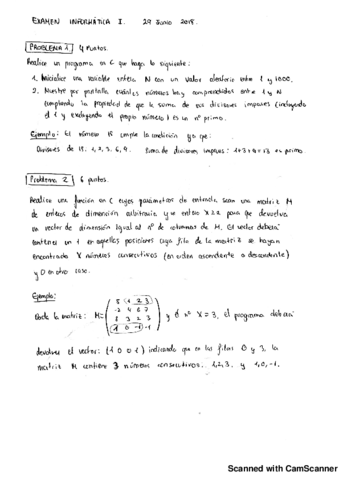 EXAMEN INFORMÁTICA I. 29 Junio 2018.
PROBLEMA 1 4 puntos.
Realice un programa en C que haga lo siguiente:
1. Inicialice una variable entera N con un valor aleatorio entre 1 y 1000.
2. Muestre por pantalla cuántos números hay comprendidos entre 1 y N
cumpliendo la propiedad de que la suma de sus divisores impares (incluyendo
el 1 y excluyendo el propio número) es un nº primo.
Ejemplo: El número 18 cumple la condición ya que:
Divisores de 18: 1, 2, 3, 6, 9. Suma de divisores impares: 1+3+9=13 es primo.
Problema 2 6 puntos.
Realice una función en C cuyos parámetros de entrada sean una matriz M
de enteros de dimensión arbitraria y un entero X≥2 para que devuelva
un vector de dimensión igual al nº de columnas de M. El vector deberá
contener un 1 en aquellas posiciones cuya fila de la matriz se hayan
encontrado X números consecutivos (en orden ascendente o descendente)
y 0 en otro caso.
Ejemplo:
Dada la matriz: M= y el nº X=3, el programa deberá
5 1 2 3
-2 4 6 7
8 3 2 3
1 0 -1 -1
devolver el vector: (1 0 0 1) indicando que en las filas 0 y 3, la
matriz M contiene 3 números consecutivos: 1, 2, 3. y 1, 0, -1.
Scanned with CamScanner